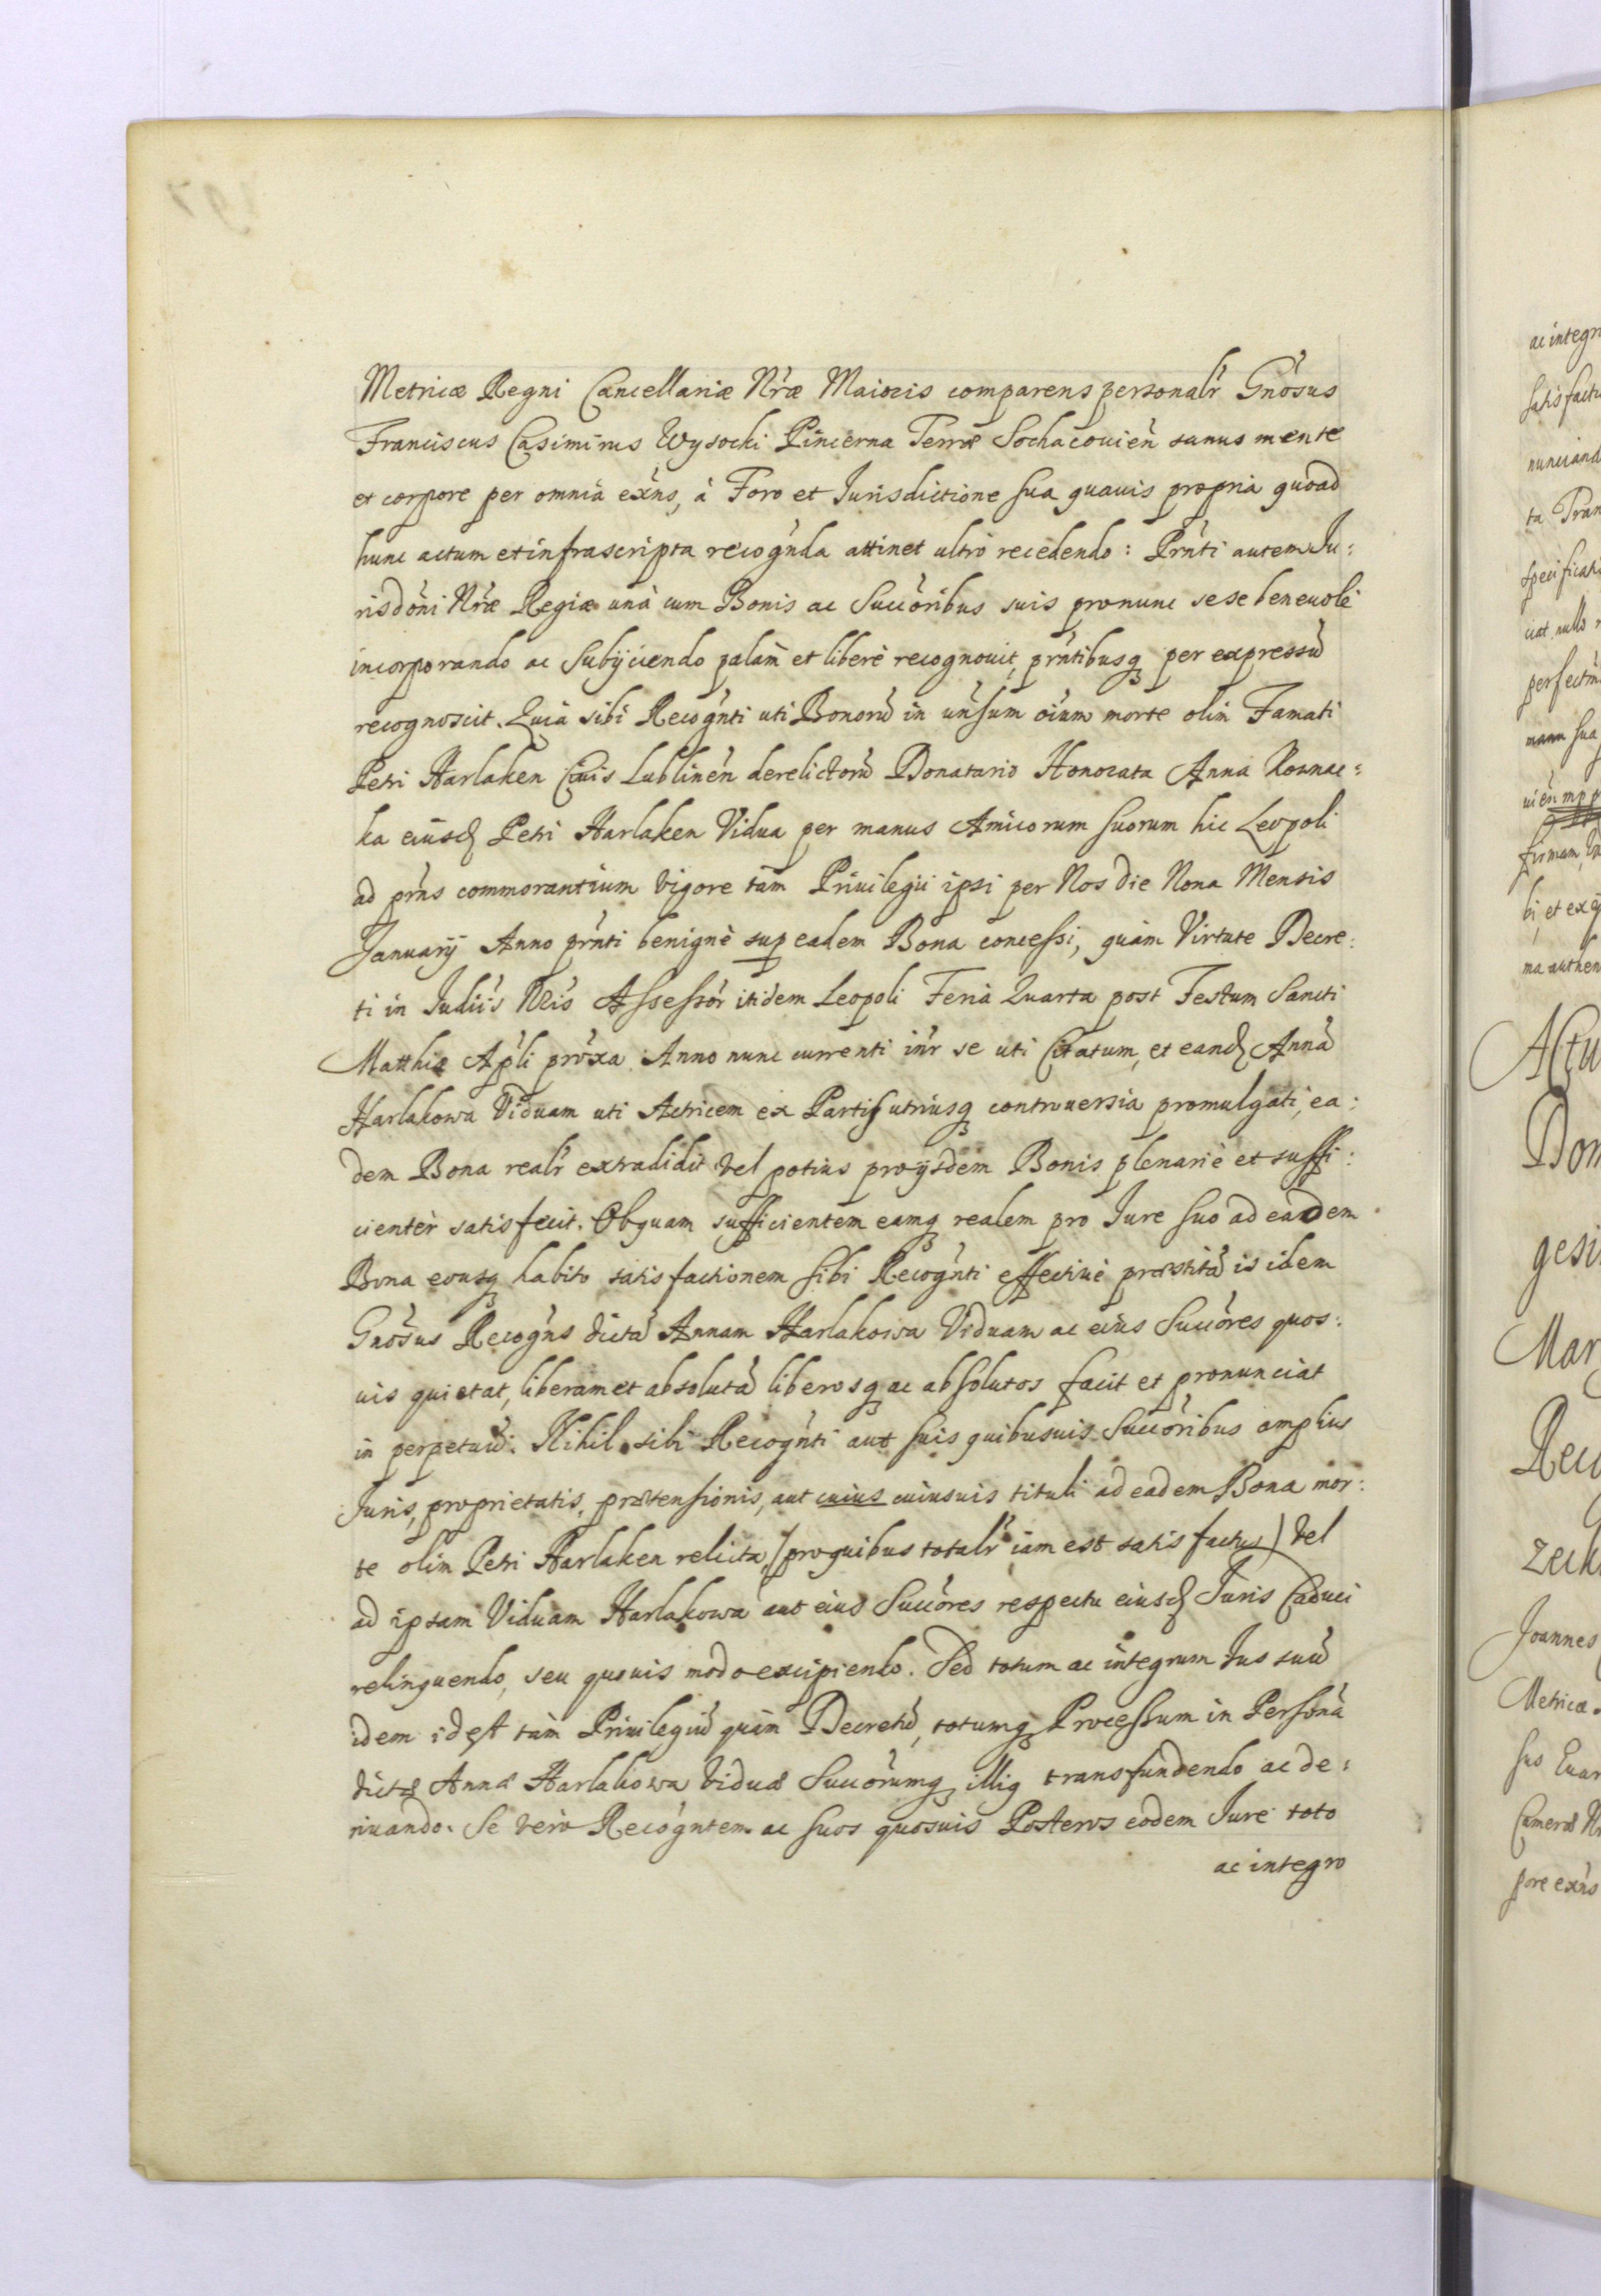 Metricæ Regni Cancellariæ Nr̃æ Maioris comparens personalr̃ Gñosus
Franciscus Casimirus Wysocki Pincerna Terræ Sochacouieñ sanus mente
et corpore per omnia exñs, à Foro et Jurisdictione sua quauis propria quoad
hunc actum et infrascripta recogñda attinet ultrò recedendo: Prñti autem Ju:
risdõni Nr̃æ Regiæ unà cum Bonis ac Succõribus suis pronunc sese beneuolè
incorporando ac Subijciendo palam̃ et liberè recognouit, prñtibusq́ per expressũ
recognoscit. Quia sibi Recogñti uti Bonorũ in uñsum oĩum morte olim Famati
Petri Harlaken Ciuis Lublineñ derelictorũ Donatario Honorata Anna Kownac:
ka eiusd́ Petri Harlaken Vidua per manus Amicorum suorum hic Leopoli
ad prñs commorantium vigore tàm Priuilegii ipsi per Nos die Nona Mensis
Januarij Anno prñti benignè sup eadem Bona concessi, quàm Virtute Decre:
ti in Judiĩs Nr̃is Assessor̃ itidem Leopoli Feria Quarta post Festum Sancti
Matthiæ Apl̃i prõxa Anno nunc currenti inr̃ se uti Citatum, et eand́ Annã
Harlakowa Viduam uti Actricem ex Partis utriusq́ controuersia promulgati, ea:
dem Bona realr̃ extradidit vel potius pro ijsdem Bonis plenariè et suffi:
cienter satisfecit. Ob quam sufficientem eamq́ realem pro Jure suo ad eadem
Bona eousq́ habito satisfactionem sibi Recogñti effectiuè præstitã is idem
Gñosus Recogñs dictã Annam Harlakowa Viduam ac eius Succõres quos:
uis quietat, liberam et absolutã liberosq́ ac absolutos facit et pronunciat
in perpetuũ. Nihil sibi Recogñti aut suis quibusuis Succõribus amplius
Juris, proprietatis, prætensionis, aut cuius cuiusuis tituli ad eadem Bona mor:
te olim Petri Harlaken relicta, (pro quibus totalr̃ iam est satisfactus) vel
ad ipsam Viduam Harlakowa aut eius Succõres respectu eiusd́ Juris Caduci
relinquendo, seu quouis modo excipiendo. Sed totum ac integrum Jus suũ
idem id est tàm Priuilegiũ quàm Decretũ, totumq́ Processum in Personã
dictæ Annæ Harlakowa Viduæ Succõrumq́ illiq transfundendo ac de:
riuando. Se verò Recogñtem ac suos quosuis Posteros eodem Jure toto
ac integro
ac integr
satisfactu
nunciand
ta Tran
specificat
ciat nullo
perfectu
manu sua
uieñ mpp
firmam
bi, et ex
ma authen
Actu
Dom
gesi
Mar
Reco
zeck
Joannes
Metricæ
suo Euar
Cameræ
pore exñs